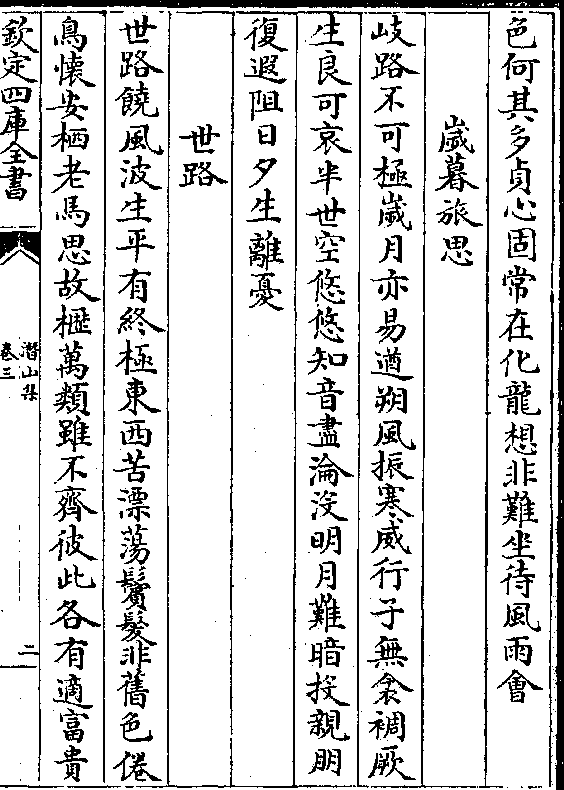 色何其多貞心固常在化龍想非難坐待風雨會
歲暮旅思
岐路不可極歲月亦易遒朔風振寒威行子無衾裯厥
生良可哀半世空悠悠知音盡淪沒明月難暗投親朋
復遐阻日夕生離憂
世路
世路饒風波生平有終極東西苦漂蕩鬢髮非舊色倦
鳥懷安栖老馬思故櫪萬類雖不齊彼此各有適富貴
欽定四庫全書
潛山集
卷三
二